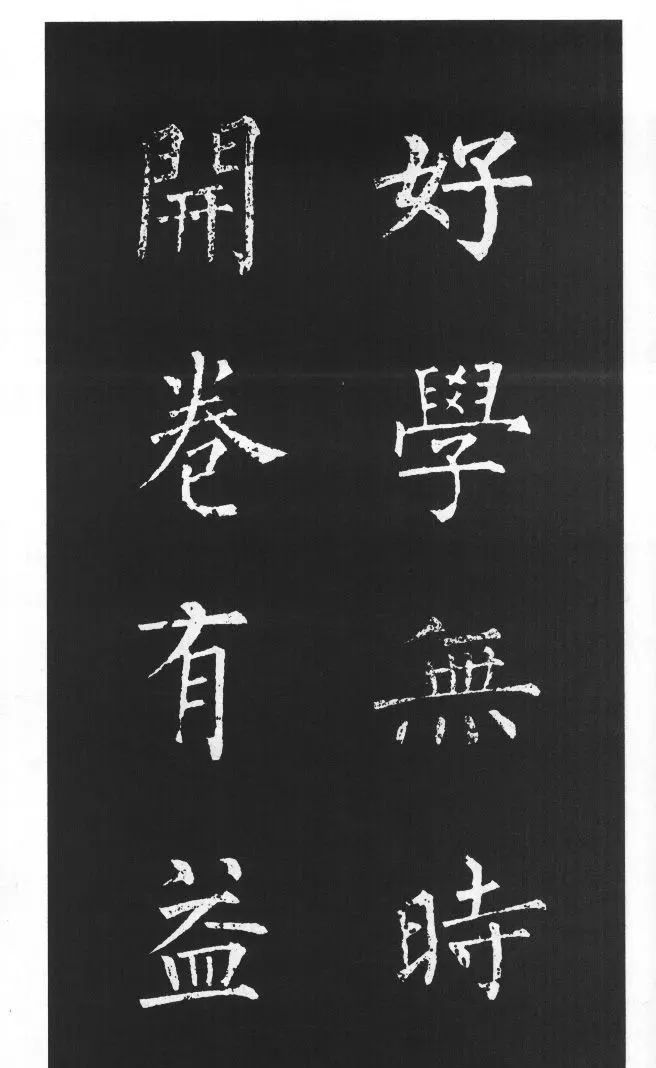 好學無時
開卷有益